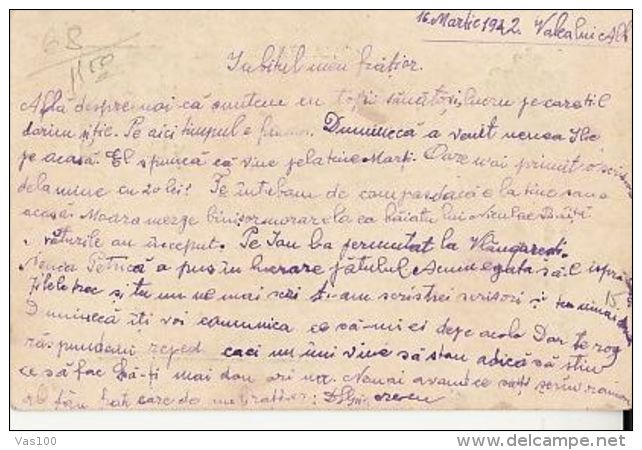 68
1150
16 Martie 1942. Valea lui Alb
Iubitul meu frățior.
Afla despre noi că suntem cu toții sănătoși, lucru pe care ți-l
dorim și ție. Pe aici timpul e frumos. Duminecă a venit nenea Ilie
pe acasă. El spunea că vine pe la tine Marți. Oare mai primit o scri
dela mine cu 20 lei? Te întebam de compas dacă e la tine sau
acasă. Moara merge binișor morar e la ea băiatu lui Niculae
au început. Pe Ion l-a permutat la
Nenea Petrică a pus în lucrare pătulul Acum e gata să-l
Zilele trec și tu nu ne mai scri ți-am scris trei scrisori și tu nimai
15
Duminecă îți voi comunica ce să-mi ei depe acolo Dar te rog
răspunde-mi reped caci nu îmi vine să stau adică să știu
ce să fac să-ți mai dau ori nu. Ne mai avand ce să-ți scriu raman
al tău frate care
Vas100
www.delcampe.net